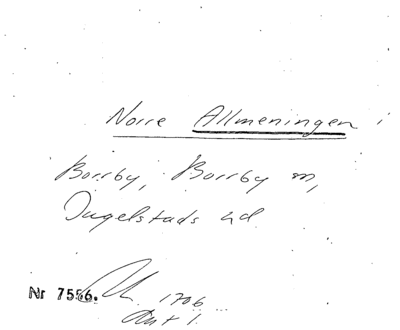 Norre Allmeningen
Borrby, Borrby sn,
Ingelstads hd
Nr 7556.
1706
Akt 1.